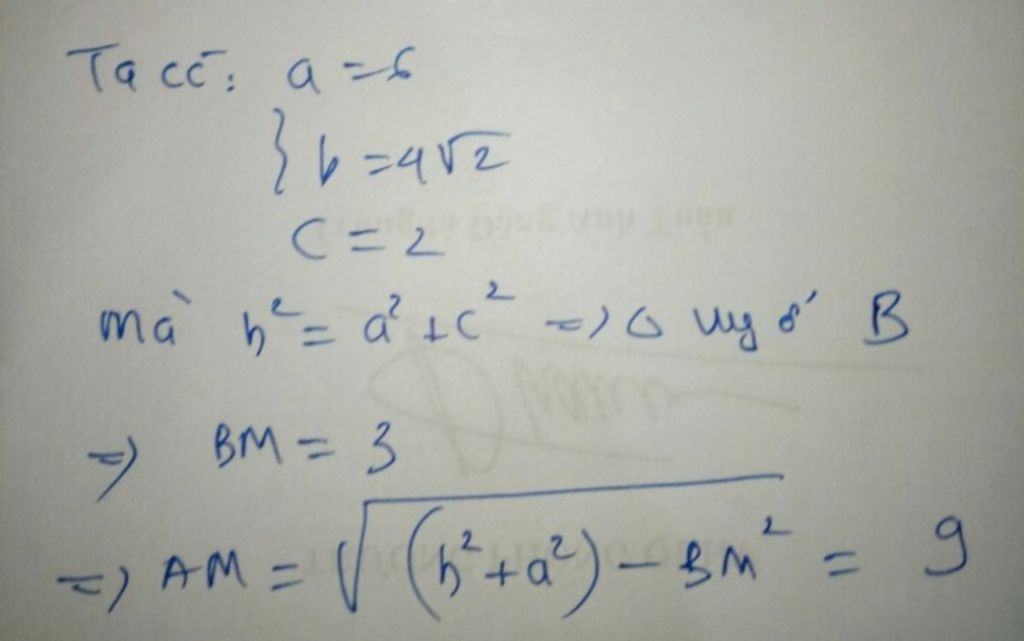 Ta có: a = 6
b = 4√2
c = 2
mà b² = a² + c² => Δ vuy ở B
=> BM = 3
=> AM = √(b² + a²) - BM² = 9